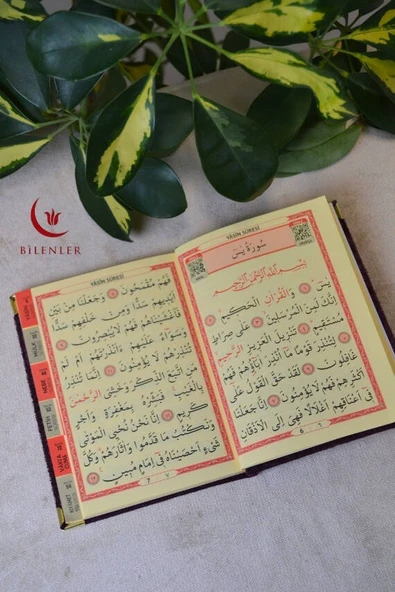 BİLENLER
YÂSÎN SÛRESİ
سُورَةُ يٰسٓ
بِسْمِ اللّٰهِ الرَّحْمٰنِ الرَّحِيمِ
يٰسٓ ۝ وَالْقُرْاٰنِ الْحَكِيمِ ۝
اِنَّكَ لَمِنَ الْمُرْسَلِينَ ۝ عَلٰى صِرَاطٍ
مُسْتَقِيمٍ ۝ تَنْزِيلَ الْعَزِيزِ الرَّحِيمِ ۝
لِتُنْذِرَ قَوْمًا مَٓا اُنْذِرَ اٰبَٓاؤُ۬هُمْ فَهُمْ
غَافِلُونَ ۝ لَقَدْ حَقَّ الْقَوْلُ عَلٰٓى
اَكْثَرِهِمْ فَهُمْ لَا يُؤْمِنُونَ ۝ اِنَّا جَعَلْنَا
فِٓى اَعْنَاقِهِمْ اَغْلَالًا فَهِىَ اِلَى الْاَذْقَانِ
6 ٦
YÂSÎN SÛRESİ
فَهُمْ مُقْمَحُونَ ۝ وَجَعَلْنَا مِنْ بَيْنِ
اَيْدِيهِمْ سَدًّا وَمِنْ خَلْفِهِمْ سَدًّا
فَاَغْشَيْنَاهُمْ فَهُمْ لَا يُبْصِرُونَ ۝
وَسَوَٓاءٌ عَلَيْهِمْ ءَاَنْذَرْتَهُمْ اَمْ لَمْ
تُنْذِرْهُمْ لَا يُؤْمِنُونَ ۝ اِنَّمَا تُنْذِرُ
مَنِ اتَّبَعَ الذِّكْرَ وَخَشِىَ الرَّحْمٰنَ
بِالْغَيْبِ فَبَشِّرْهُ بِمَغْفِرَةٍ وَاَجْرٍ
كَرِيمٍ ۝ اِنَّا نَحْنُ نُحْيِ الْمَوْتٰى
وَنَكْتُبُ مَا قَدَّمُوا وَاٰثَارَهُمْ وَكُلَّ
شَىْءٍ اَحْصَيْنَاهُ فِٓى اِمَامٍ مُبِينٍ ۝
7 ٧
YÂSÎN
MÜLK
FETİH
VÂKIA
CUMA